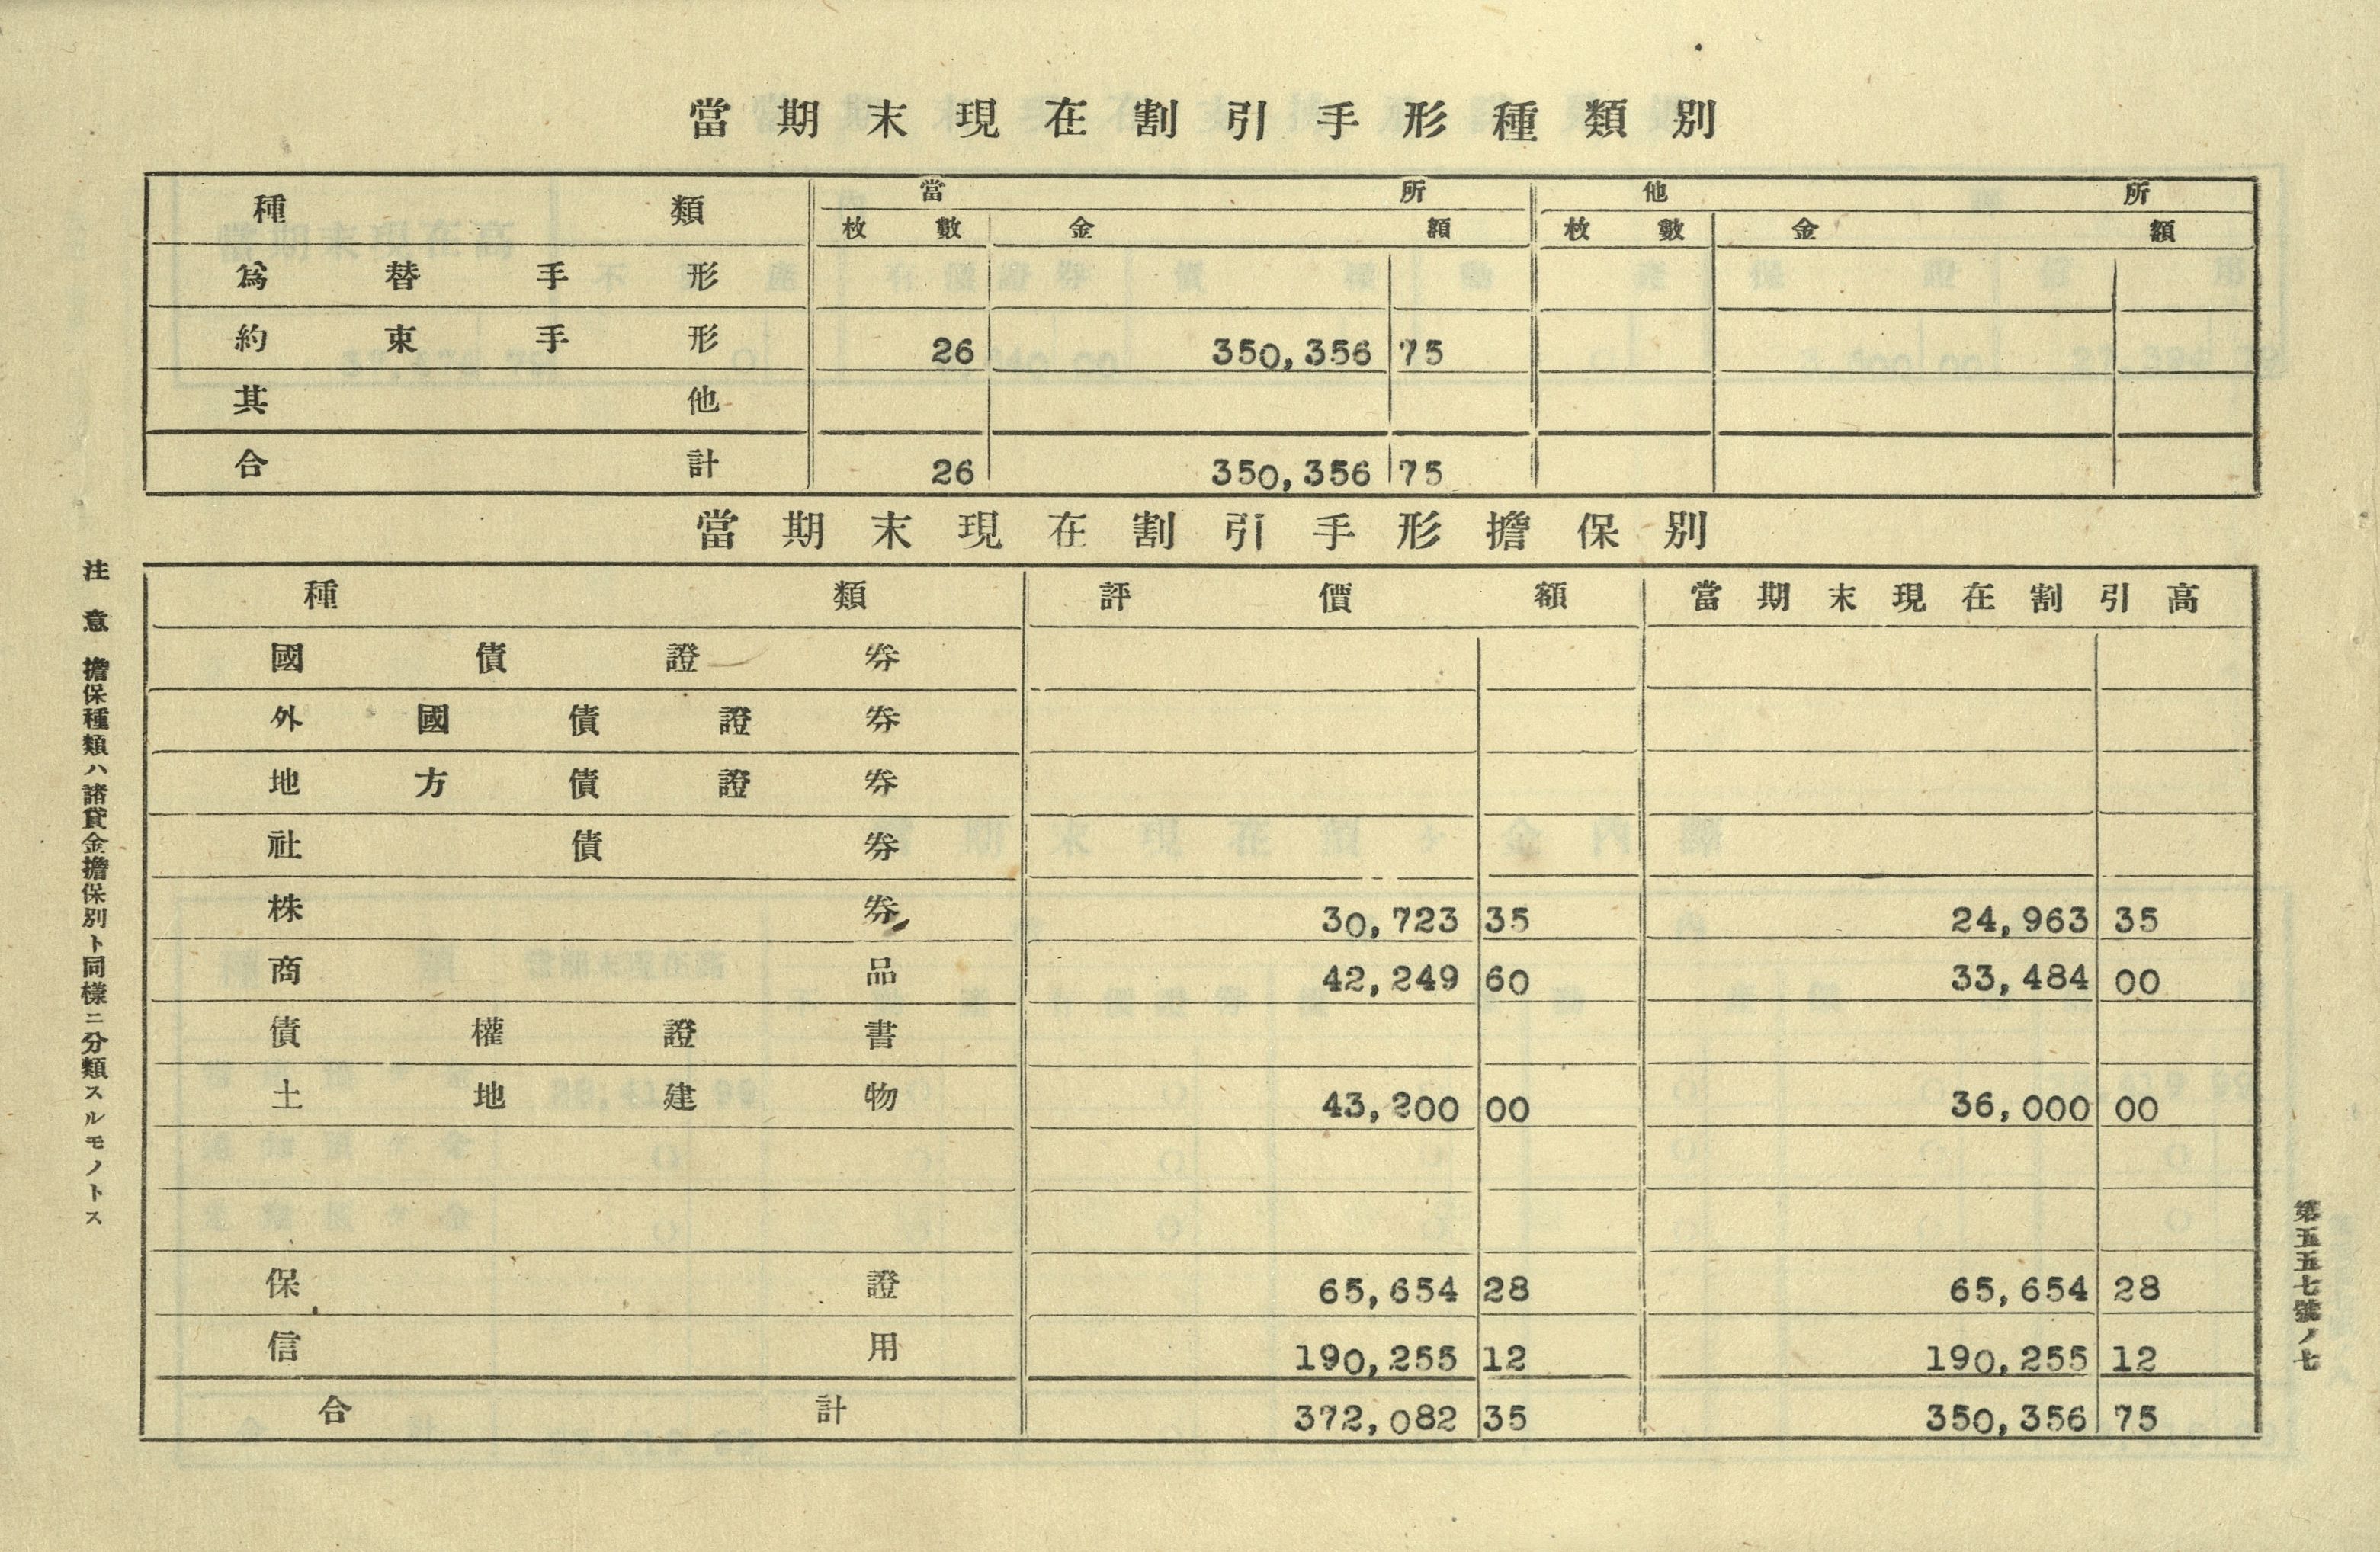 當期末現在割引手形種類別
種類 當所 他所
枚數 金額 枚數 金額
爲替手形
約束手形 26 350,356 75
其他
合計 26 350,356 75
當期末現在割引手形擔保別
種類 評價額 當期末現在割引高
國債證券
外國債證券
地方債證券
社債券
株券 30,723 35 24,963 35
商品 42,249 60 33,484 00
債權證書
土地建物 43,200 00 36,000 00
保證 65,654 28 65,654 28
信用 190,255 12 190,255 12
合計 372,082 35 350,356 75
注意 擔保種類ハ諸貸金擔保別ト同樣ニ分類スルモノトス
第五五七號ノ七